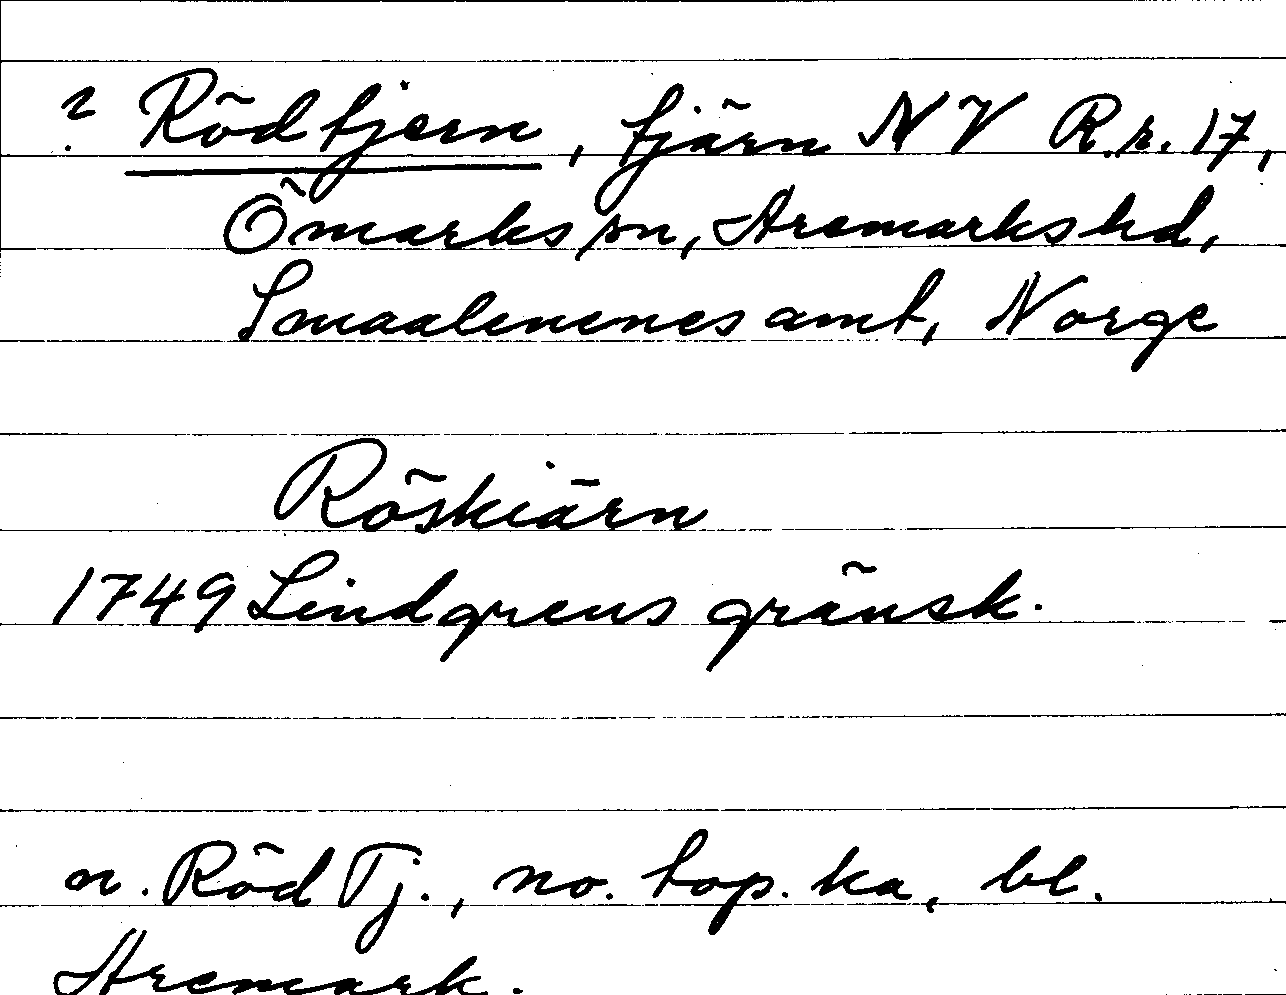 ? Rödtjern, tjärn NV R.r. 17,
Ömarks sn, Aremarks hd,
Smaalenenes amt, Norge
Röskiärn
1749 Lindgrens gränsk.
n. Röd Tj., no. top. ka, bl.
Aremark.